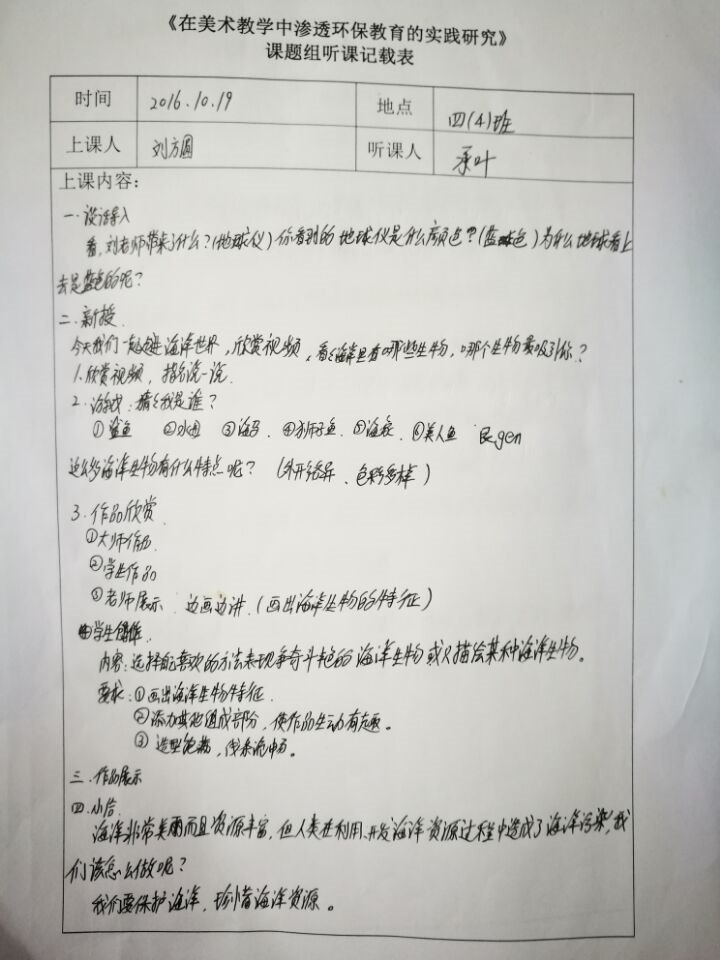 《在美术教学中渗透环保教育的实践研究》
课题组听课记载表
时间 2016.10.19 地点 四(4)班
上课人 刘方圆 听课人 承叶
上课内容:
一.谈话导入
看,刘老师带来了什么?(地球仪)你看到的地球仪是什么颜色?(蓝色)为什么地球看上
去是蓝色的呢?
二.新授.
今天我们一起走进海洋世界,欣赏视频,看看海洋里有哪些生物,哪个生物最吸引你?
1.欣赏视频,指名说一说.
2.游戏:猜猜我是谁?
①鲨鱼 ②水母 ③海马.④狮子鱼.⑤海葵.⑥美人鱼
这么多海洋生物有什么特点呢?(外形各异、色彩多样)
3.作品欣赏.
①大师作品.
②学生作品
③老师展示.边画边讲.(画出海洋生物的特征)
④学生创作.
内容:选择自己喜欢的方法表现争奇斗艳的海洋生物或只描绘某种海洋生物。
要求:①画出海洋生物特征.
②添加其他组成部分,使作品生动有趣。
③造型饱满,线条流畅。
三.作品展示
四.小结.
海洋非常美丽而且资源丰富,但人类在利用、开发海洋资源过程中造成了海洋污染,我
们该怎么做呢?
我们要保护海洋,珍惜海洋资源。